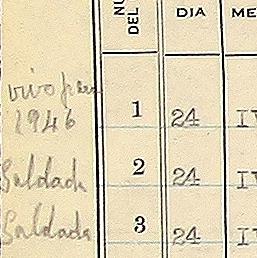 NU
DEL
DIA
ME
vivo para
1946
1
24
IV
Saldada
2
24
IV
Saldada
3
24
IV